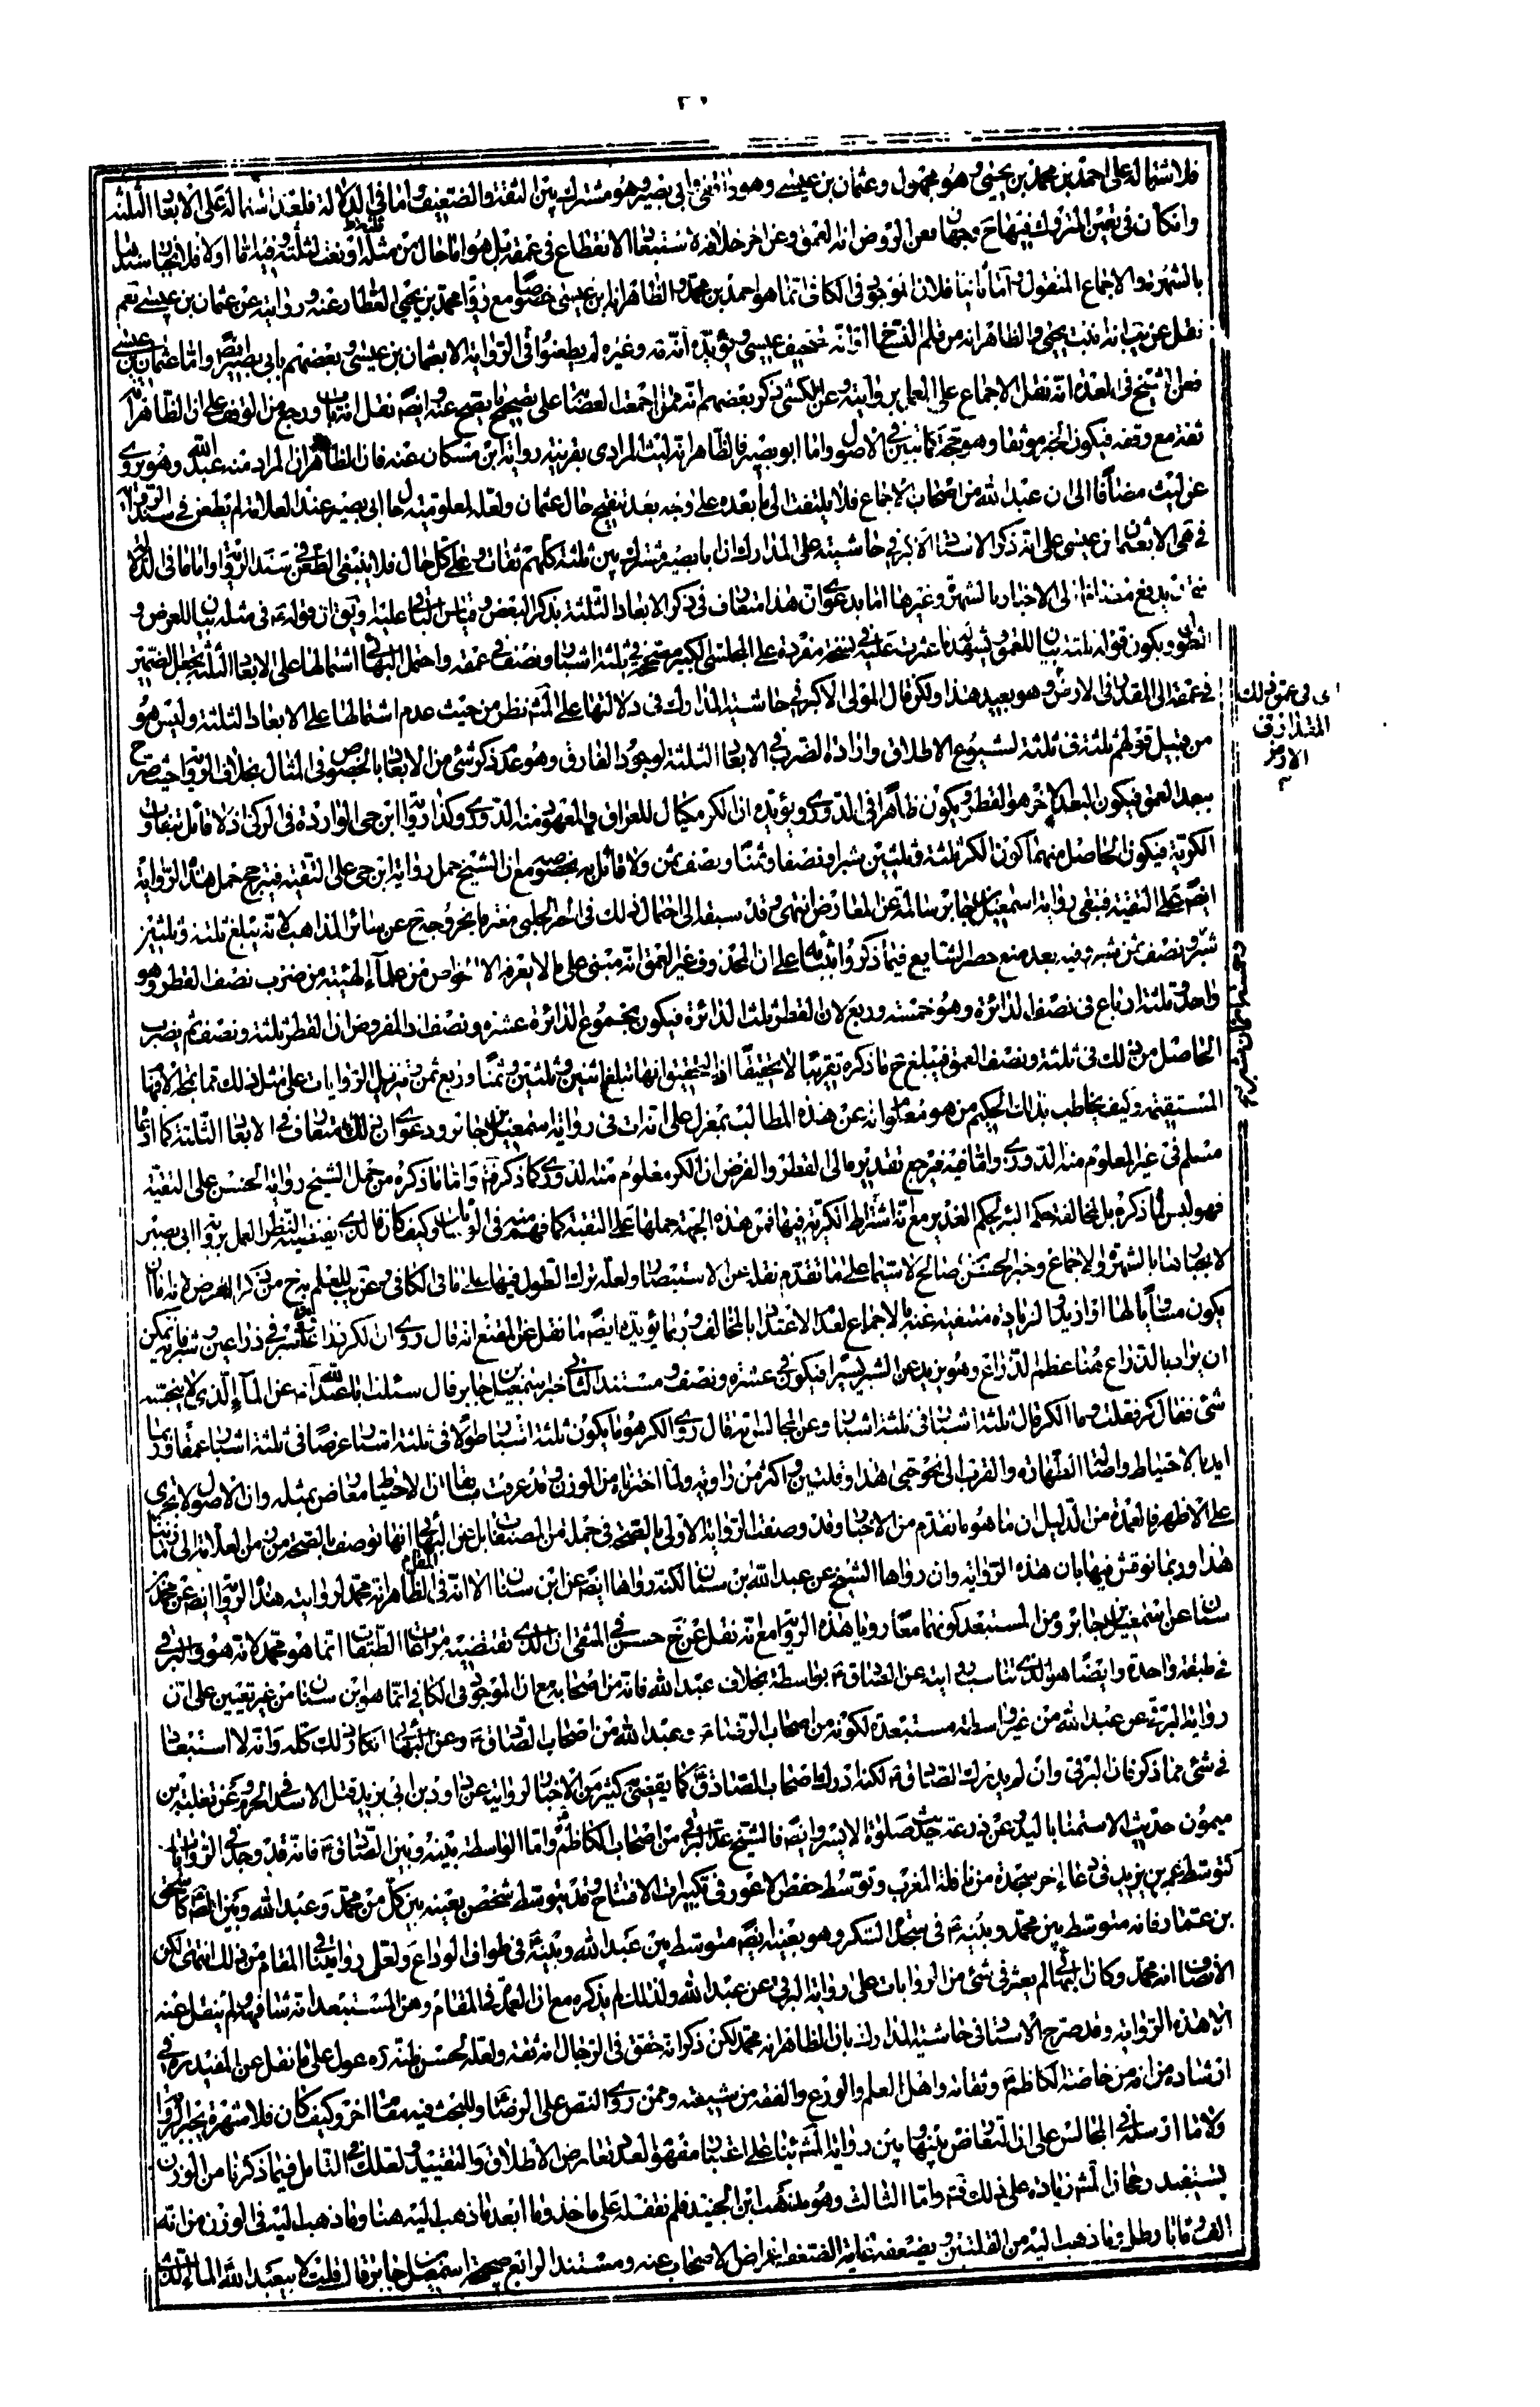 ٢٠
فلاشتماله على احمد بن محمد بن يحيى وهو مجهول وعثمان بن عيسى وهو واقفى وابى بصير وهو مشترك بين الثقة والضعيف واما فى الدلالة فلعدم اشتماله على الابعاد الثلثة
وامكان فى تعيين المتروك فيها ح وجهان فعن الروض انه العمق وعن اخر خلافه لاستبعاد الانقطاع فى عمقه بل هو اما حال من مثله او نعت لثلثة وفيه اما اولا فلانجبار السند
بالشهرة والاجماع المنقول واما ثانيا فلان الموجود فى الكافى انما هو احمد بن محمد والظاهر انه ابن عيسى خصوصا مع رواية محمد بن يحيى العطار عنه وروايته عن عثمان بن عيسى نعم
نقل عن يب انه اثبت يحيى والظاهر انه من قلم النساخ او انه تصحيف عيسى ويؤيده أنه وغيره لم يطعنوا فى الرواية الا بعثمان بن عيسى وبعضهم بابى بصير ايضا واما عثمان بن عيسى
فعن الشيخ فى العدة انه نقل الاجماع على العمل بروايته وعن الكشى ذكر بعضهم انه ممن اجمعت العصابة على تصحيح ما يصح عنه وايضا نقل انه تاب ورجع من الوقف على ان الظاهر انه
ثقة مع وقفه فيكون الخبر موثقا وهو حجة كما تبين فى الاصول واما ابو بصير فالظاهر انه ليث المرادى بقرينة رواية ابن مسكان عنه فان الظاهر ان المراد منه عبد الله وهو يروى
عن ليث مضافا الى ان عبد الله من اصحاب الاجماع فلا يلتفت الى ما بعده على وجه بعد تنقيح حال عثمان ولعله لمعلومية حال ابى بصير عند العلامة لم يطعن فى سند الرواية
فى هى الا بعثمان ابن عيسى على انه ذكر الاستاد الاكبر فى حاشيته على المدارك ان ابا بصير مشترك بين ثلثة كلهم ثقات وعلى كل حال فلا ينبغى الطعن فى سند الرواية واما ما فى الدلالة
الى الاخبار بالشهرة وغيرها اما بدعوى ان هذا متعارف فى ذكر الابعاد الثلثة بذكر البعض وقياس الباقى عليه او ان قوله ع فى مثله بيان للعرض و
الطول ويكون قوله ثلثة بيان للعمق ويشهد له ما عثرت عليه فى نسخة مقروة على المجلسى الكبير مصححة فى ثلثة اشبار ونصف فى عمقه واحتمل البهائى اشتمالها على الابعاد الثلثة بجعل الضمير
فى عمقه الى المقدار فى الارض وهو بعيد هذا ولكن قال المولى الاكبر فى حاشية المدارك فى دلالتها على المش نظر من حيث عدم اشتمالها على الابعاد الثلثة وليس هو
من قبيل قولهم ثلثة فى ثلثة لشيوع الاطلاق وارادة الضرب فى الابعاد الثلثة لوجود الفارق وهو عدم ذكر شئ من الابعاد بالخصوص فى المثال بخلاف الرواية حيث صرح
ببعد العمق فيكون البعد الاخر هو القطر ويكون ظاهرا فى الدورى ويؤيده ان الكر مكيال للعراق والمعهود منه الدورى وكذا رواية ابن حى الواردة فى الركى اذ لا قائل بتفاوت
الكرية فيكون الحاصل منهما كون الكر ثلثة وثلثين شبرا ونصفا وثمنا ونصف ثمن ولا قائل به بخصوصه مع ان الشيخ حمل رواية ابن حى على التقية فيرجح حمل هذه الرواية
ايضا على التقية فتبقى رواية اسمعيل بن جابر سالمة عن المعارض انتهى وقد سبقه الى احتمال ذلك فى اخر الحبل المتين مغترا بخروجه ح عن سائر المذاهب لانه يبلغ ثلثة وثلثين
شبرا ونصف ثمن شبر وفيه بعد منع حصر الشايع فيما ذكروا بتنائه على ان المحذوف غير العمق انه مبنى على ما لا يعرفه الا الخواص من علماء الهيئة من ضرب نصف القطر وهو
واحد وثلثة ارباع فى نصف الدائرة وهو خمسة وربع لان القطر ثلث الدائرة فيكون مجموع الدائرة عشرة ونصف اذ المفروض ان القطر ثلثة ونصف ثم يضرب
الحاصل من ذلك فى ثلثة ونصف العمق فيبلغ ح ما ذكره تقريبا لا تحقيقا اذ التحقيق انها تبلغ اثنين وثلثين وثمنا وربع ثمن وتنزيل الروايات على مثل ذلك مما تمجه الافهام
المستقيمة وكيف يخاطب بذلك الحكيم من هو معلوم انه عن هذه المطالب بمعزل على انه ات فى رواية اسمعيل بن جابر ودعوى ان ذلك متعارف فى الابعاد الثلثة كما ادعى
مسلم فى غير المعلوم منه الدورى واما فيه فيرجع تقديره الى القطر والفرض ان الكر معلوم منه الدورى كما ذكره واما ما ذكره من حمل الشيخ رواية الحسن على التقية
فهو ليس لما ذكره بل لمخالفة حكم البئر لحكم الغدير مع انه اشترط الكرية فيها فمن هذه الجهة حملها على التقية كما فهمه منه فى الوسائل وكيف كان فالذى يقتضيه النظر العمل برواية ابى بصير
لانجبارها بالشهرة والاجماع وخبر الحسن صالح لا سيما على ما تقدم نقله عن الاستبصار ولعله ترك الطول فيها على ما فى الكافى وعن يب للعلم به ح من ذكر العرض لانه اما ان
يكون مساويا لها او ازيد والزيادة منتفية عنه بالاجماع لعدم الاعتداد بالمخالف وربما يؤيده ايضا ما نقل عن المقنع انه قال روى ان الكر ذراعان وشبر فى ذراعين وشبر فانه يمكن
ان يراد بالذراع هنا عظم الذراع وهو يزيد عن الشبر يسيرا فيكون فى عشرة ونصف ومستند الثانى خبر اسمعيل بن جابر قال سئلت ابا عبد الله ع عن الماء الذى لا ينجسه
شئ فقال كر فقلت وما الكر قال ثلثة اشبار فى ثلثة اشبار وعن المجالس انه قال روى الكر هو ما يكون ثلثة اشبار طولا فى ثلثة اشبار عرضا فى ثلثة اشبار عمقا وربما
ايد بالاحتياط واصالة الطهارة والقرب الى نحو حبى هذا وقلتين واكثر من راوية ولما اخترناه من الوزن وقد عرفت سابقا ان الاحتياط معارض بمثله وان الاصول لا تجرى
على الاظهر فالعمدة من الدليل ان ما هو ما تقدم من الاخبار وقد وصفت الرواية الاولى بالصحة فى جملة من المصنفات بل عن البهائى انها توصف بالصحة من زمن العلامة الى زماننا
هذا وربما نوقش فيها بان هذه الرواية وان رواها الشيخ عن عبد الله بن سنان لكنه رواها ايضا عن ابن سنان الا انه فى المقام الظاهر انه محمد لروايته هذه الرواية ايضا عن محمد بن
سنان عن اسمعيل بن جابر ومن المستبعد كونهما معا رويا هذه الرواية مع انه نقل عن خ حسن فى المنتقى ان الذى تقتضيه مراعات الطبقات انما هو محمد لانه هو والبرقى
فى طبقة واحدة وايضا هو الذى تناسب روايته عن الصادق ع بواسطة بخلاف عبد الله فانه من اصحابه مع ان الموجود فى الكافى انما هو ابن سنان من غير تعيين على ان
رواية البرقى عن عبد الله من غير واسطة مستبعدة لكونه من اصحاب الرضا ع وعبد الله من اصحاب الصادق ع وعن البهائى انكار ذلك كله وانه لا استبعاد
فى شئ مما ذكر فان البرقى وان لم يدرك الصادق ع لكنه ادرك اصحاب الصادق ع كما يقتضى كثير من الاخبار لروايته عن داود بن ابى يزيد قتل الاسد فى الحرم وعن ثعلبة بن
ميمون حديث الاستمناء باليد وعن زرعة حديث صلوة الاسير وايضا فالشيخ عد البرقى من اصحاب الكاظم ع واما الواسطة بينه وبين الصادق ع فانه قد وجد فى الروايات
كتوسط عمر بن يزيد فى دعاء اخر سجدة من نافلة المغرب وتوسط حفص الاعور فى تكبيرات الافتتاح وقد يتوسط شخص بعينه بين كل من محمد وعبد الله وبين الصادق كاسحق
بن عمار فانه متوسط بين محمد وبينه ع فى سجدة الشكر وهو بعينه ايضا متوسط بين عبد الله وبينه ع فى طواف الوداع ولعل روايتنا فى المقام من ذلك انتهى لكن
الانصاف انه محمد وكان البهائى لم يعثر فى شئ من الروايات على رواية البرقى عن عبد الله ولذلك لم يذكره مع انه العمدة فى المقام ومن المستبعد انه شافهه ولم ينقل عنه
الا هذه الرواية وقد صرح الاستاد فى حاشية المدارك بان الظاهر انه محمد لكن ذكر انه حقق فى الرجال انه ثقة ولعله لحسن ظنه ره عول على ما نقل عن المفيد ره فى
ارشاده من انه من خاصة الكاظم ع وثقاته واهل العلم والورع والفقه من شيعته وممن روى النص على الرضا ع وللبحث فيه مقام اخر وكيف كان فلا شهرة تجبر الرواية
ولا ما ارسله فى المجالس على ان التعارض بينها وبين رواية المش بناء على اعتبار مفهوم العدد تعارض الاطلاق والتقييد ولعلك مع التامل فيما ذكرنا من الوزن
يستفيد رجحان المش زيادة على ذلك فت واما الثالث وهو مذهب ابن الجنيد فلم نقف له على ماخذ وما ابعد ما ذهب اليه هنا وما ذهب اليه فى الوزن من انه
الف ومائتا رطل وما ذهب اليه من القلتين ويضعفه غاية الضعف اعراض الاصحاب عنه ومستند الرابع صحيحة اسمعيل بن جابر قال قلت لابى عبد الله الماء الذى
اى فى عمق ذلك
المقدار فى
الارض